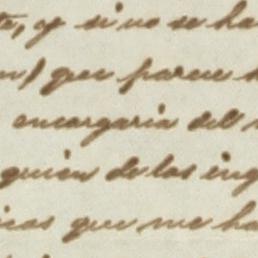 te, y si no se ha
que parece
encargaria del
quien de los ing
que me ha